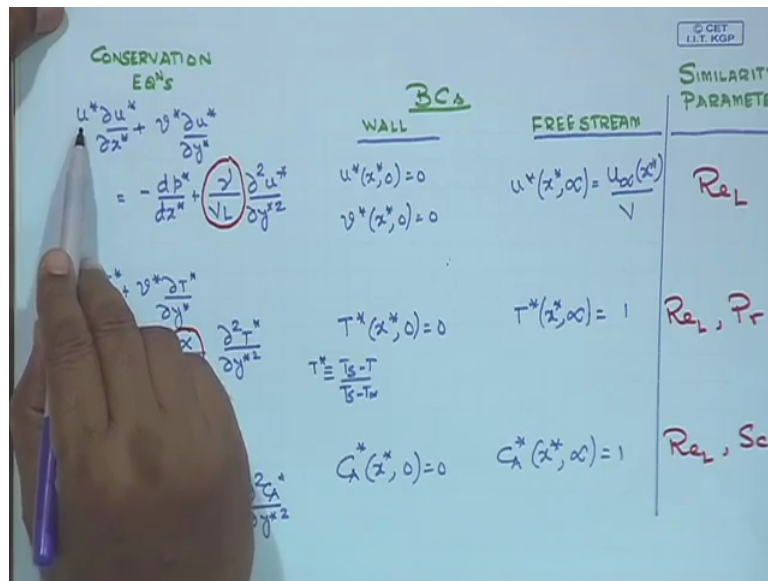 © CET
I.I.T. KGP
CONSERVATION
EQNS
BCs
SIMILARIT
PARAMETE
WALL
FREE STREAM
u* ∂u*/∂x* + v* ∂u*/∂y*
= - dp*/dx* + ν/VL ∂²u*/∂y*²
u*(x*,0)=0
v*(x*,0)=0
u*(x*,∞) = U∞(x*)/V
ReL
+ v* ∂T*/∂y*
α ∂²T*/∂y*²
T*(x*,0)=0
T*(x*,∞) = 1
ReL, Pr
T* ≡ Ts-T/Ts-T∞
∂²CA*/∂y*²
CA*(x*,0)=0
CA*(x*,∞)=1
ReL, Sc